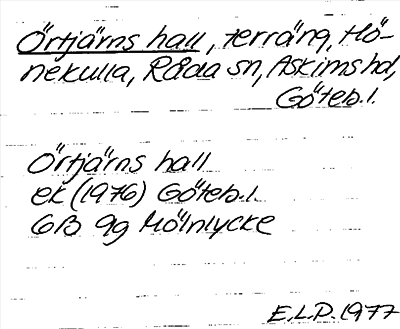 Örtjärns hall, terräng, Hö-
nekulla, Råda sn, Askims hd,
Göteb.l.
Örtjärns hall
ek (1976) Göteb.l.
6B 9g Mölnlycke
E.L.P. 1977